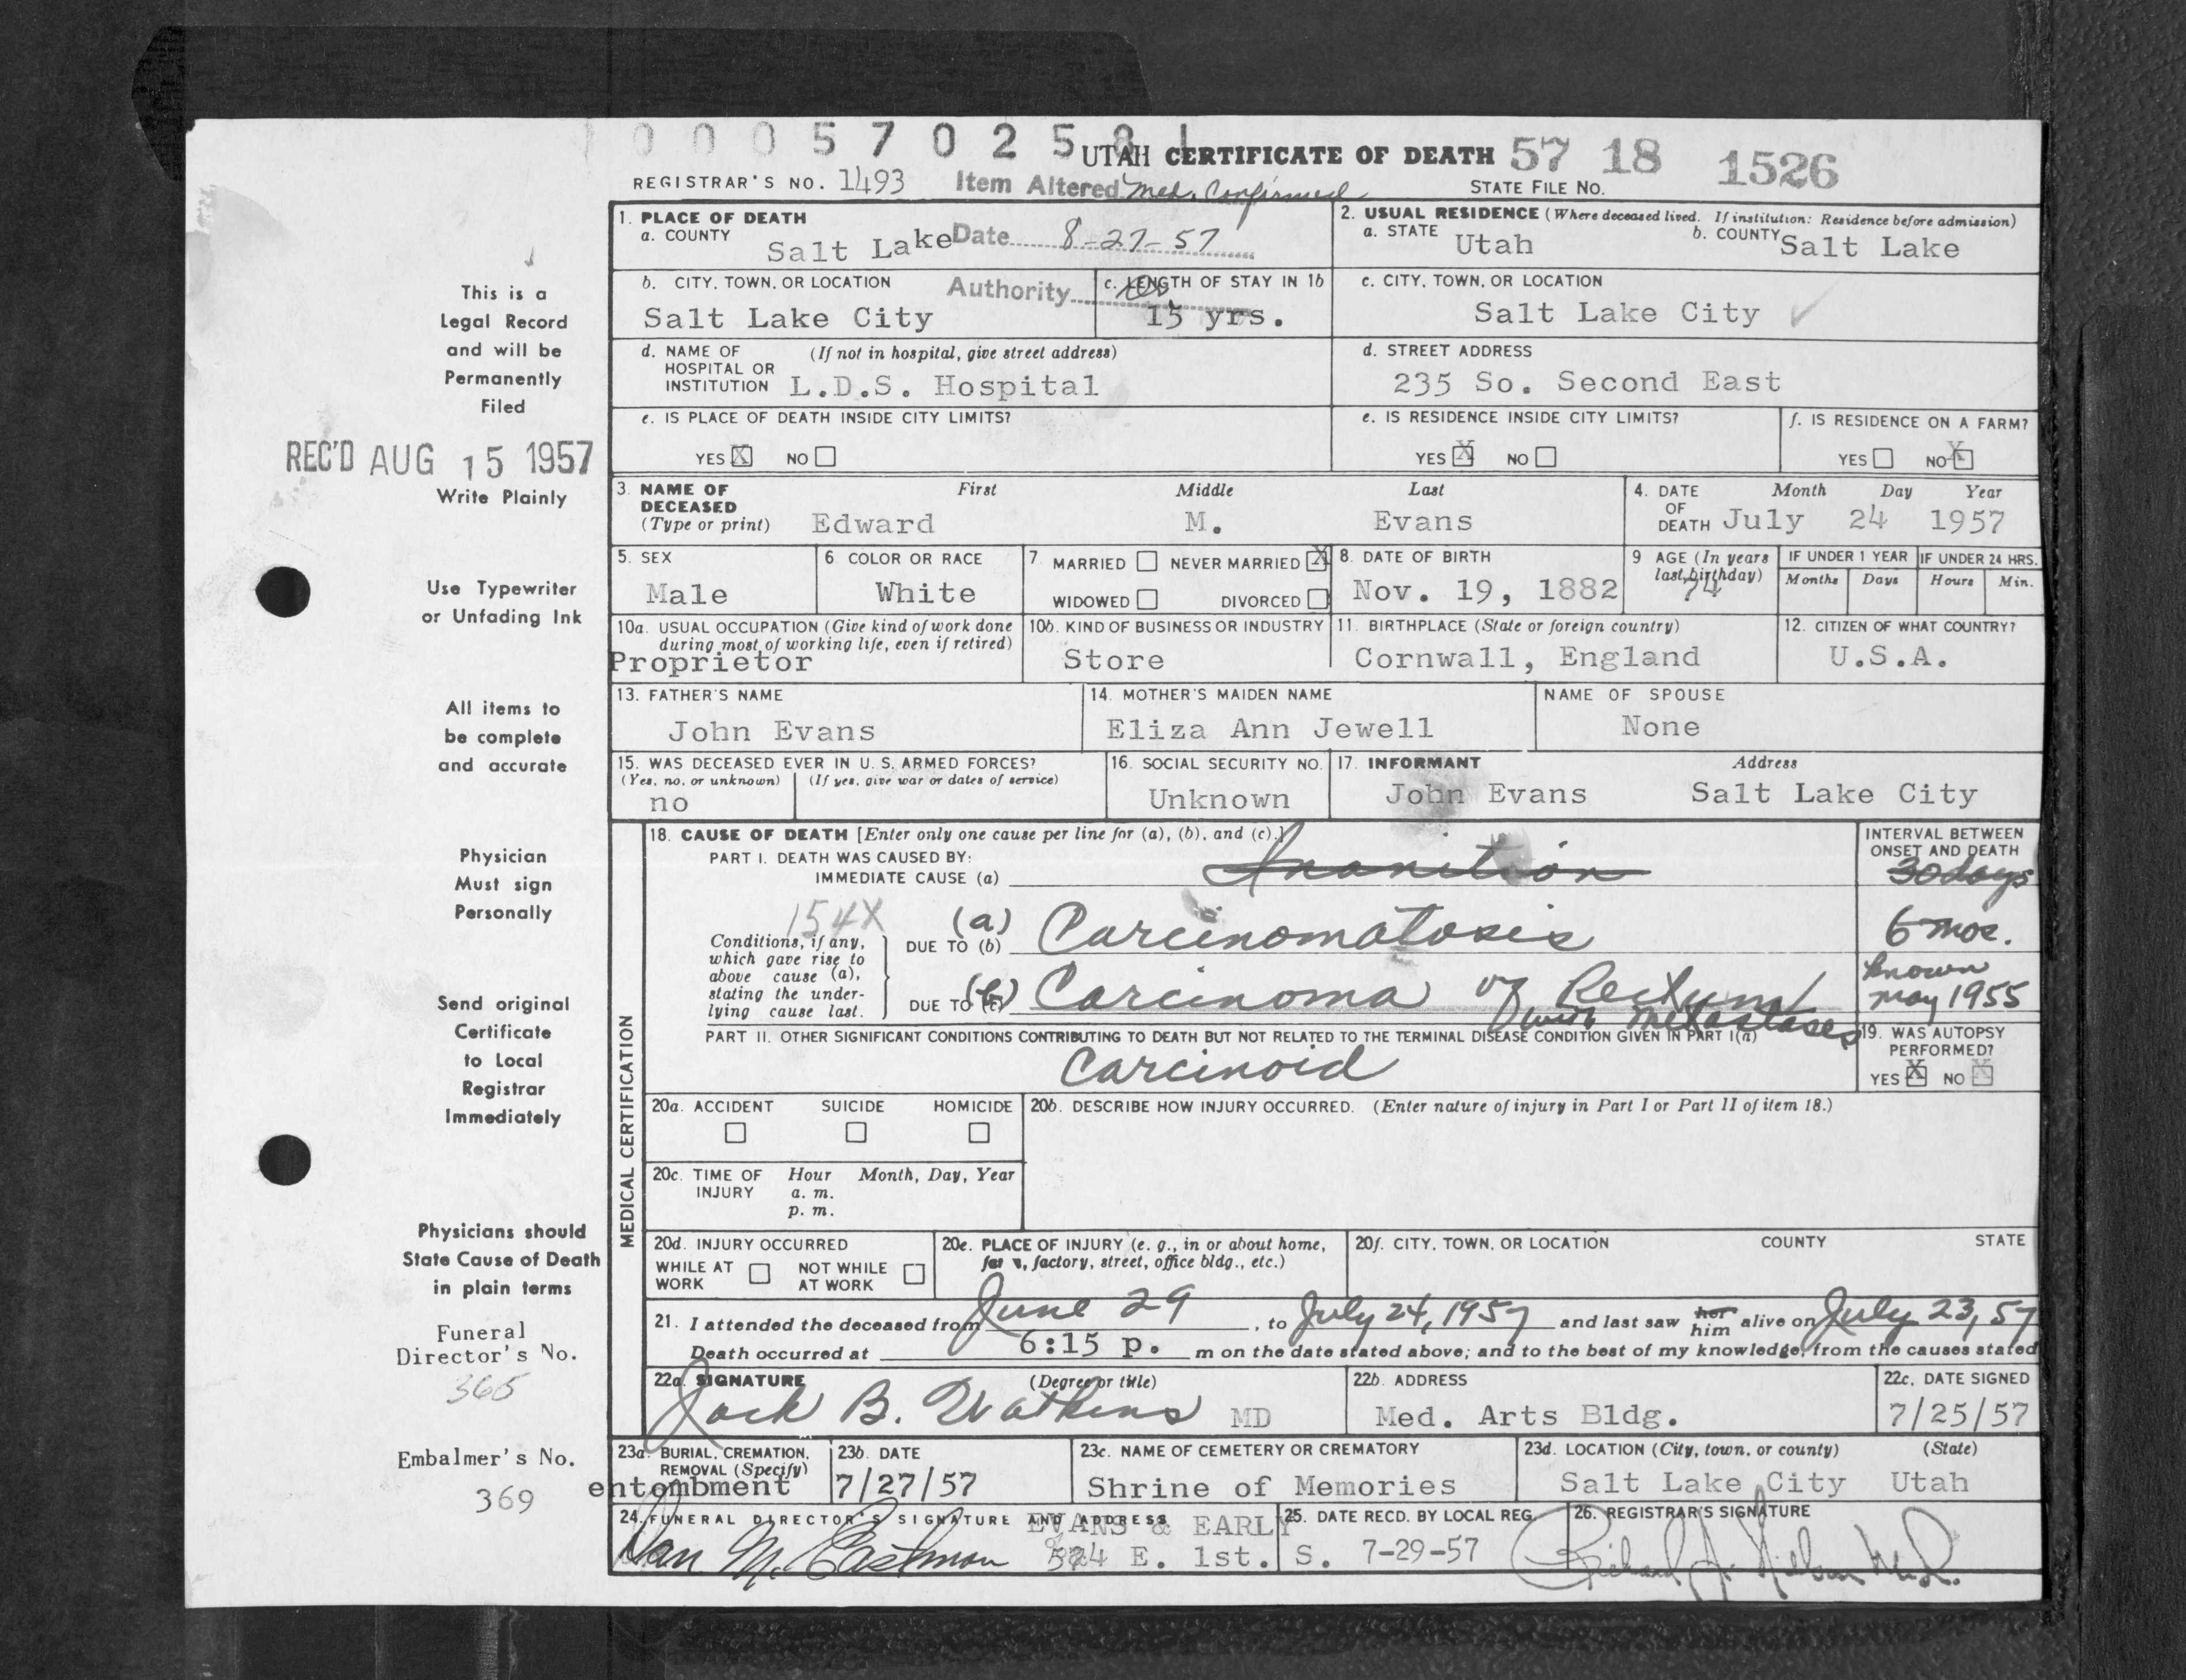 0 0 0 5 7 0 2 5 8 1
UTAH CERTIFICATE OF DEATH 57 18 1526
REGISTRAR'S NO. 1493 Item Altered Med. Confirmed STATE FILE NO.
1. PLACE OF DEATH
a. COUNTY Salt Lake Date 8-27-57
2. USUAL RESIDENCE (Where deceased lived. If institution: Residence before admission)
a. STATE Utah b. COUNTY Salt Lake
b. CITY, TOWN, OR LOCATION Salt Lake City Authority
c. LENGTH OF STAY IN 1b 15 yrs.
c. CITY, TOWN, OR LOCATION Salt Lake City
d. NAME OF HOSPITAL OR INSTITUTION (If not in hospital, give street address) L.D.S. Hospital
d. STREET ADDRESS 235 So. Second East
e. IS PLACE OF DEATH INSIDE CITY LIMITS?
YES X NO
e. IS RESIDENCE INSIDE CITY LIMITS?
YES X NO
f. IS RESIDENCE ON A FARM?
YES NO X
3. NAME OF DECEASED (Type or print) First Edward Middle M. Last Evans
4. DATE OF DEATH Month Day Year July 24 1957
5. SEX Male
6. COLOR OR RACE White
7. MARRIED NEVER MARRIED X
WIDOWED DIVORCED
8. DATE OF BIRTH Nov. 19, 1882
9. AGE (In years last birthday) 74
IF UNDER 1 YEAR Months Days
IF UNDER 24 HRS. Hours Min.
10a. USUAL OCCUPATION (Give kind of work done during most of working life, even if retired) Proprietor
10b. KIND OF BUSINESS OR INDUSTRY Store
11. BIRTHPLACE (State or foreign country) Cornwall, England
12. CITIZEN OF WHAT COUNTRY? U.S.A.
13. FATHER'S NAME John Evans
14. MOTHER'S MAIDEN NAME Eliza Ann Jewell
NAME OF SPOUSE None
15. WAS DECEASED EVER IN U. S. ARMED FORCES?
(Yes, no, or unknown) (If yes, give war or dates of service)
no
16. SOCIAL SECURITY NO. Unknown
17. INFORMANT John Evans Address Salt Lake City
MEDICAL CERTIFICATION
18. CAUSE OF DEATH [Enter only one cause per line for (a), (b), and (c).]
PART I. DEATH WAS CAUSED BY:
IMMEDIATE CAUSE (a) Inanition
INTERVAL BETWEEN ONSET AND DEATH
30 days
154X
Conditions, if any, which gave rise to above cause (a), stating the underlying cause last.
(a) DUE TO (b) Carcinomatosis 6 mos.
DUE TO (b) Carcinoma of Rectum with metastases known May 1955
PART II. OTHER SIGNIFICANT CONDITIONS CONTRIBUTING TO DEATH BUT NOT RELATED TO THE TERMINAL DISEASE CONDITION GIVEN IN PART I(a)
Carcinoid
19. WAS AUTOPSY PERFORMED?
YES X NO X
20a. ACCIDENT SUICIDE HOMICIDE
20b. DESCRIBE HOW INJURY OCCURRED. (Enter nature of injury in Part I or Part II of item 18.)
20c. TIME OF INJURY Hour Month, Day, Year
a. m.
p. m.
20d. INJURY OCCURRED
WHILE AT WORK NOT WHILE AT WORK
20e. PLACE OF INJURY (e. g., in or about home, farm, factory, street, office bldg., etc.)
20f. CITY, TOWN, OR LOCATION COUNTY STATE
21. I attended the deceased from June 29, to July 24, 1957 and last saw her him alive on July 23, 57
Death occurred at 6:15 p. m on the date stated above; and to the best of my knowledge, from the causes stated
22a. SIGNATURE (Degree or title) Jack B. Watkins MD
22b. ADDRESS Med. Arts Bldg.
22c. DATE SIGNED 7/25/57
23a. BURIAL, CREMATION, REMOVAL (Specify) entombment
23b. DATE 7/27/57
23c. NAME OF CEMETERY OR CREMATORY Shrine of Memories
23d. LOCATION (City, town, or county) (State) Salt Lake City Utah
24. FUNERAL DIRECTOR'S SIGNATURE AND ADDRESS EVANS & EARLY
Dan M. Eastman 574 E. 1st. S.
25. DATE RECD. BY LOCAL REG. 7-29-57
26. REGISTRAR'S SIGNATURE
This is a
Legal Record
and will be
Permanently
Filed
REC'D AUG 15 1957
Write Plainly
Use Typewriter
or Unfading Ink
All items to
be complete
and accurate
Physician
Must sign
Personally
Send original
Certificate
to Local
Registrar
Immediately
Physicians should
State Cause of Death
in plain terms
Funeral
Director's No.
365
Embalmer's No.
369